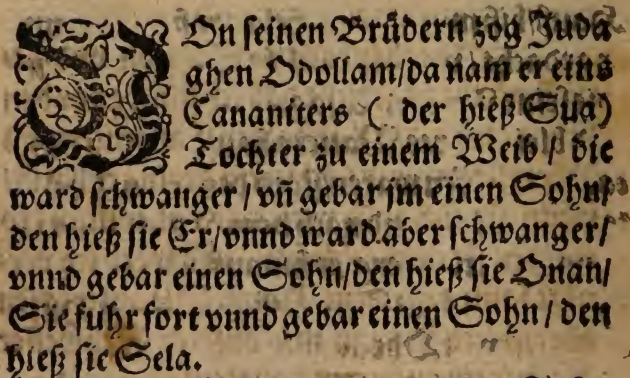 VOn ſeinen Brüdern zog Juda
ghen Odollam/da nam er eins
Cananiters ( der hieß Sua)
Tochter zu einem Weib / die
ward ſchwanger / vñ gebar jm einen Sohn/
den hieß ſie Er/vnnd ward aber ſchwanger/
vnnd gebar einen Sohn/den hieß ſie Onan/
Sie fuhr fort vnnd gebar einen Sohn / den
hieß ſie Sela.